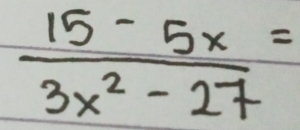 15 - 5x =
3x² - 27